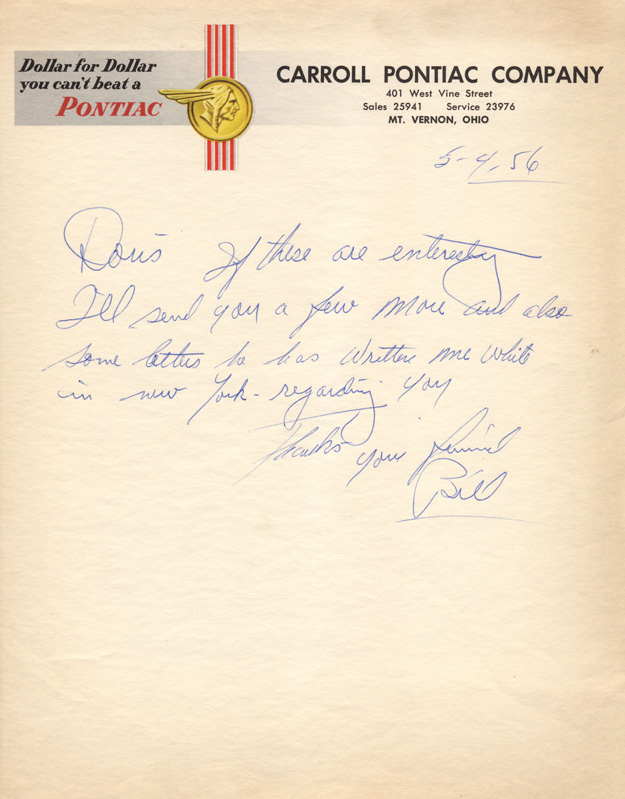 Dollar for Dollar
you can't beat a
PONTIAC
CARROLL PONTIAC COMPANY
401 West Vine Street
Sales 25941 Service 23976
MT. VERNON, OHIO
5-4, 56
Doris If these are enteresting
I'll send you a few more and also
some letters he has written me while
in new York - regarding you
Thanks your friend
Bill